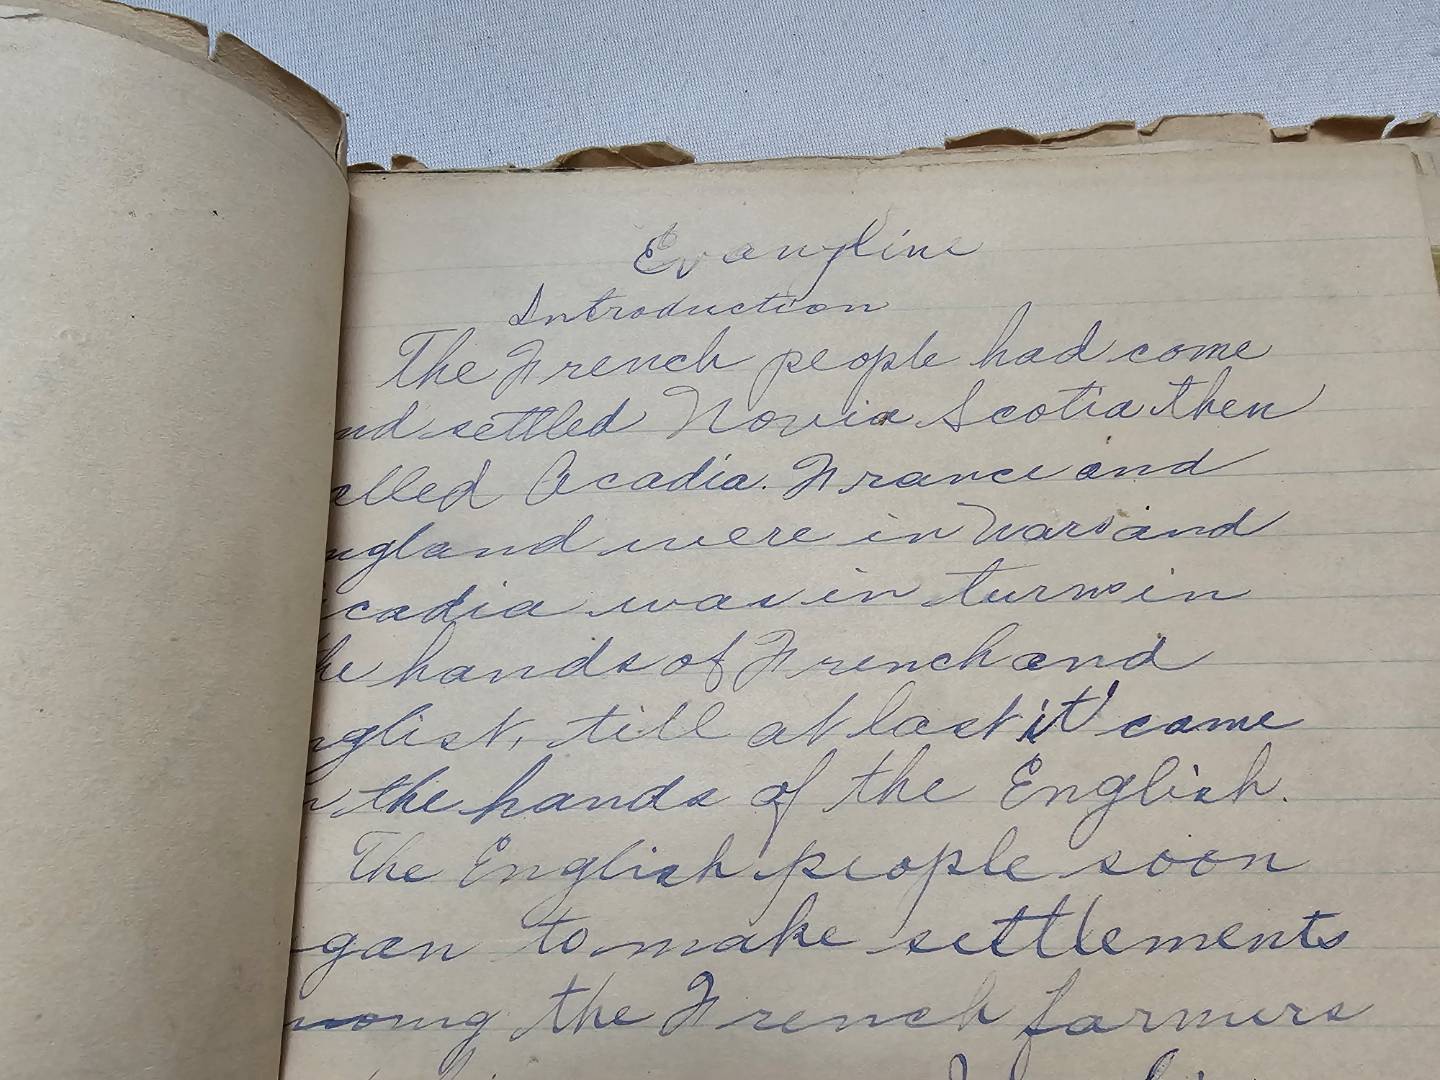 Evangline
Introduction
The French people had come
nd settled Novia Scotia then
lled Acadia. France and
ngland were in wars and
cadia was in turns in
he hands of French and
nglish, till at last it came
n the hands of the English.
The English people soon
gan to make settlements
mong the French farmers